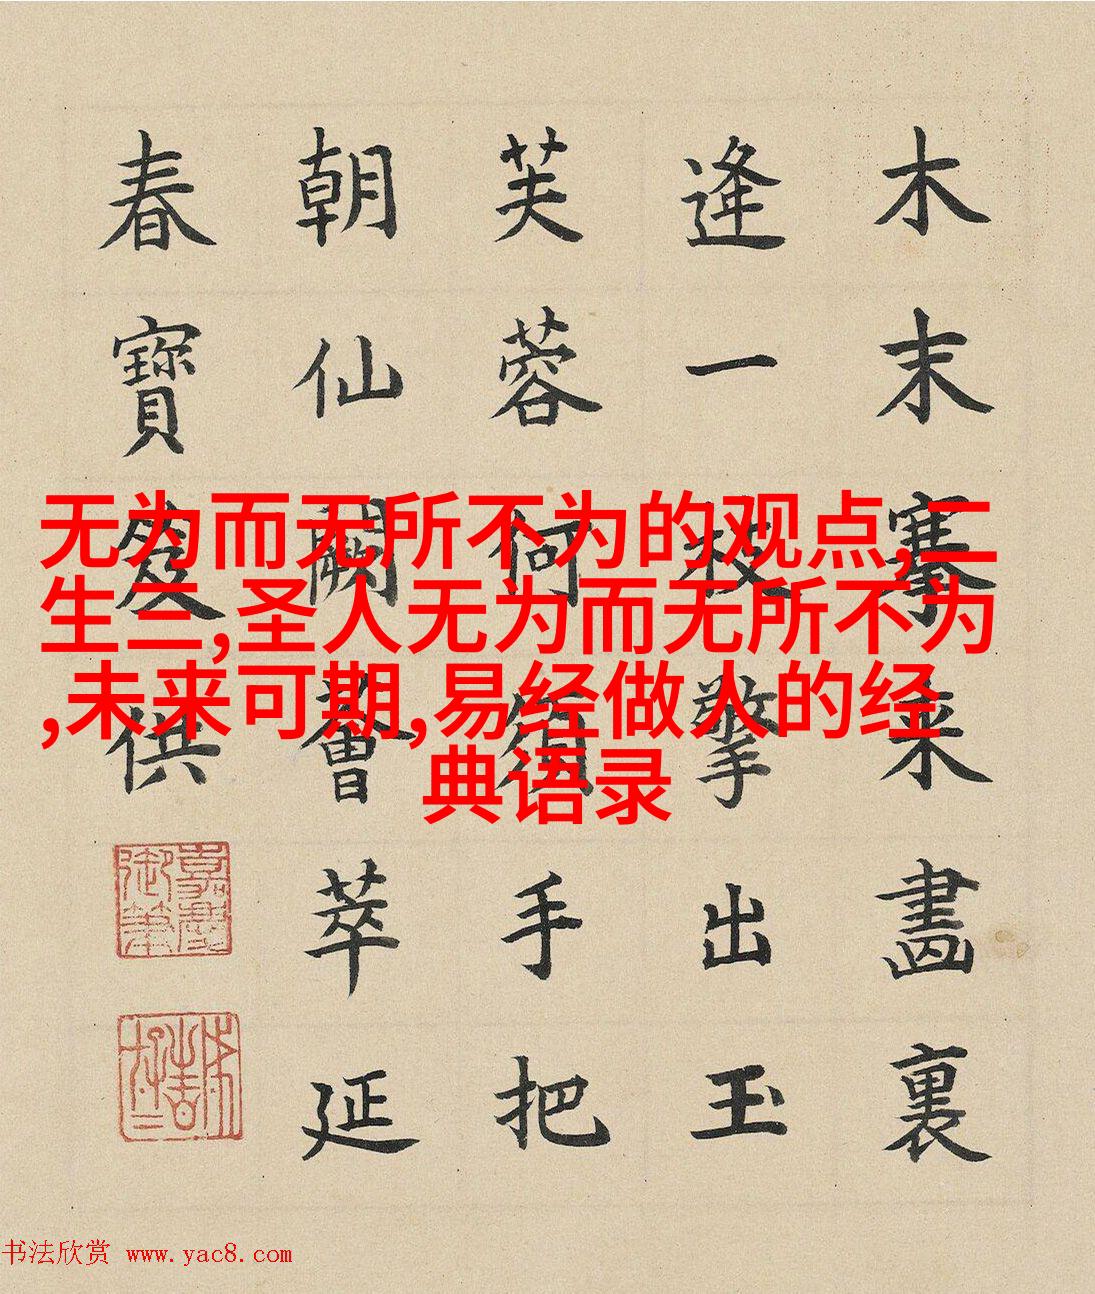 木末搴来畫裏
逢一枝擎出玉
芙蓉何須手把
朝仙闕薈萃延
春寶笈供
嘉慶御筆
无为而无所不为的观点,二
生三,圣人无为而无所不为
,未来可期,易经做人的经
典语录
书法欣赏 www.yac8.com